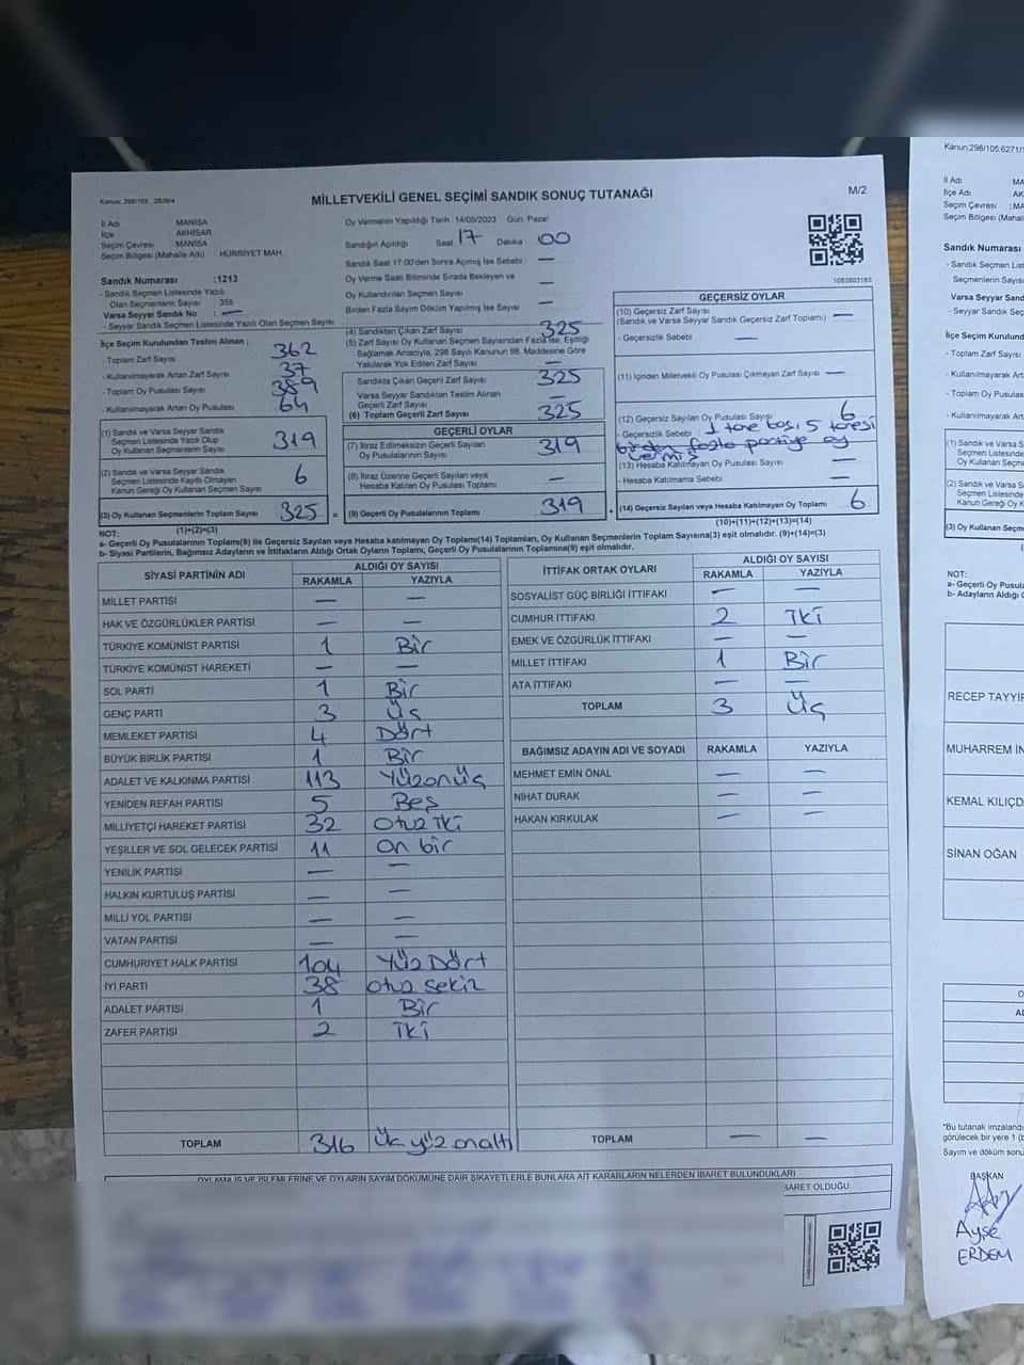 MİLLETVEKİLİ GENEL SEÇİMİ SANDIK SONUÇ TUTANAĞI
M/2
İl Adı : MANİSA
İlçe : AKHİSAR
Seçim Çevresi : MANİSA
Seçim Bölgesi (Mahalle Adı) : HÜRRİYET MAH.
Oy Vermenin Yapıldığı Tarih :14/05/2023 Gün: Pazar
Sandığın Açıldığı Saat 17 Dakika 00
Sandık Saat 17:00'den Sonra Açılmış İse Sebebi : —
Oy Verme Saati Bitiminde Sırada Bekleyen ve
Oy Kullandırılan Seçmen Sayısı —
Birden Fazla Sayım Döküm Yapılmış İse Sayısı —
Sandık Numarası :1213
- Sandık Seçmen Listesinde Yazılı
Olan Seçmenlerin Sayısı : 355
Varsa Seyyar Sandık No : —
- Seyyar Sandık Seçmen Listesinde Yazılı Olan Seçmen Sayısı
İlçe Seçim Kurulundan Teslim Alınan ;
- Toplam Zarf Sayısı 362
- Kullanılmayarak Artan Zarf Sayısı 37
- Toplam Oy Pusulası Sayısı 389
- Kullanılmayarak Artan Oy Pusulası 64
(1) Sandık ve Varsa Seyyar Sandık
Seçmen Listesinde Yazılı Olup
Oy Kullanan Seçmenlerin Sayısı 319
(2) Sandık ve Varsa Seyyar Sandık
Seçmen Listesinde Kayıtlı Olmayan
Kanun Gereği Oy Kullanan Seçmen Sayısı 6
(3) Oy Kullanan Seçmenlerin Toplam Sayısı 325
(1)+(2)=(3)
(4) Sandıktan Çıkan Zarf Sayısı 325
(5) Zarf Sayısı Oy Kullanan Seçmen Sayısından Fazla İse, Eşitliği
Sağlamak Amacıyla, 298 Sayılı Kanunun 98. Maddesine Göre
Yakılarak Yok Edilen Zarf Sayısı —
Sandıkta Çıkan Geçerli Zarf Sayısı 325
Varsa Seyyar Sandıktan Teslim Alınan
Geçerli Zarf Sayısı —
(6) Toplam Geçerli Zarf Sayısı 325
GEÇERLİ OYLAR
(7) İtiraz Edilmeksizin Geçerli Sayılan
Oy Pusulalarının Sayısı 319
(8) İtiraz Üzerine Geçerli Sayılan veya
Hesaba Katılan Oy Pusulası Toplamı —
(9) Geçerli Oy Pusulalarının Toplamı 319
1083803163
GEÇERSİZ OYLAR
(10) Geçersiz Zarf Sayısı
(Sandık ve Varsa Seyyar Sandık Geçersiz Zarf Toplamı) —
- Geçersizlik Sebebi —
(11) İçinden Milletvekili Oy Pusulası Çıkmayan Zarf Sayısı —
(12) Geçersiz Sayılan Oy Pusulası Sayısı 6
- Geçersizlik Sebebi 1 tane boş, 5 tanesi
birden fazla partiye oy
vermiş
(13) Hesaba Katılmayan Oy Pusulası Sayısı —
- Hesaba Katılmama Sebebi —
(14) Geçersiz Sayılan veya Hesaba Katılmayan Oy Toplamı 6
(10)+(11)+(12)+(13)=(14)
NOT:
a- Geçerli Oy Pusulalarının Toplamı(9) ile Geçersiz Sayılan veya Hesaba Katılmayan Oy Toplamı(14) Toplamları, Oy Kullanan Seçmenlerin Toplam Sayısına(3) eşit olmalıdır. (9)+(14)=(3)
b- Siyasi Partilerin, Bağımsız Adayların ve İttifakların Aldığı Ortak Oyların Toplamı, Geçerli Oy Pusulalarının Toplamına(9) eşit olmalıdır.
SİYASİ PARTİNİN ADI ALDIĞI OY SAYISI
RAKAMLA YAZIYLA
MİLLET PARTİSİ — —
HAK VE ÖZGÜRLÜKLER PARTİSİ — —
TÜRKİYE KOMÜNİST PARTİSİ 1 Bir
TÜRKİYE KOMÜNİST HAREKETİ — —
SOL PARTİ 1 Bir
GENÇ PARTİ 3 Üç
MEMLEKET PARTİSİ 4 Dört
BÜYÜK BİRLİK PARTİSİ 1 Bir
ADALET VE KALKINMA PARTİSİ 113 Yüzonüç
YENİDEN REFAH PARTİSİ 5 Beş
MİLLİYETÇİ HAREKET PARTİSİ 32 Otuz İki
YEŞİLLER VE SOL GELECEK PARTİSİ 11 On bir
YENİLİK PARTİSİ — —
HALKIN KURTULUŞ PARTİSİ — —
MİLLİ YOL PARTİSİ — —
VATAN PARTİSİ — —
CUMHURİYET HALK PARTİSİ 104 Yüz Dört
İYİ PARTİ 38 Otuz sekiz
ADALET PARTİSİ 1 Bir
ZAFER PARTİSİ 2 İki
TOPLAM 316 Üç yüz onaltı
İTTİFAK ORTAK OYLARI ALDIĞI OY SAYISI
RAKAMLA YAZIYLA
SOSYALİST GÜÇ BİRLİĞİ İTTİFAKI — —
CUMHUR İTTİFAKI 2 İki
EMEK VE ÖZGÜRLÜK İTTİFAKI — —
MİLLET İTTİFAKI 1 Bir
ATA İTTİFAKI — —
TOPLAM 3 Üç
BAĞIMSIZ ADAYIN ADI VE SOYADI RAKAMLA YAZIYLA
MEHMET EMİN ÖNAL — —
NİHAT DURAK — —
HAKAN KIRKULAK — —
TOPLAM — —
OYLAMA İŞ VE İŞLEMLERİNE VE OYLARIN SAYIM DÖKÜMÜNE DAİR ŞİKAYETLERLE BUNLARA AİT KARARLARIN NELERDEN İBARET BULUNDUKLARI
BARET OLDUĞU
Kanun:298/105,6271/1
İl Adı : MA
İlçe Adı : AK
Seçim Çevresi : MA
Seçim Bölgesi (Mahall
Sandık Numarası
- Sandık Seçmen List
Seçmenlerin Sayıs
Varsa Seyyar Sandı
- Seyyar Sandık Seçm
İlçe Seçim Kurulund
- Toplam Zarf Sayısı
- Kullanılmayarak Arta
- Toplam Oy Pusulası
- Kullanılmayarak Arta
(1) Sandık ve Varsa S
Seçmen Listesinde
Oy Kullanan Seçm
(2) Sandık ve Varsa S
Seçmen Listesinde
Kanun Gereği Oy K
(3) Oy Kullanan Seçme
NOT:
a- Geçerli Oy Pusula
b- Adayların Aldığı O
RECEP TAYYİP
MUHARREM İN
KEMAL KILIÇD
SİNAN OĞAN
"Bu tutanak imzalandı
görülecek bir yere 1 (b
Sayım ve döküm sonu
BAŞKAN
Ayşe
ERDEM